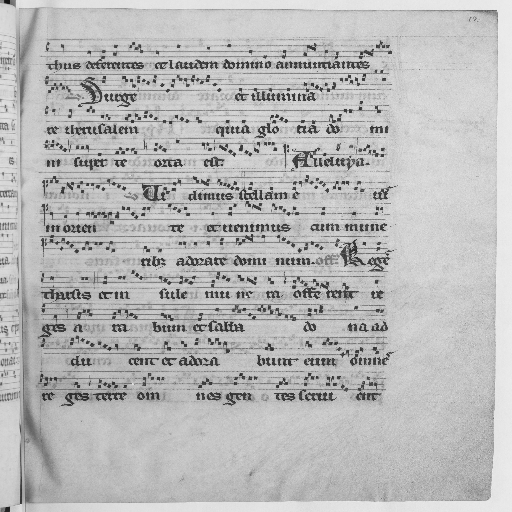 thus deferentes et laudem domino annuntiantes
Surge et illumina
re iherusalem quia glo ria do mi
ni super te orta est Alleluya.
Vi dimus stellam e ius
in orien te et uenimus cum mune
ribus adorare domi num. off Reges
tharsis et in sule mu ne ra offe rent re
ges a ra bum et saba do na ad
du cent et adora bunt eum omnes
re ges terre om nes gen tes serui ent